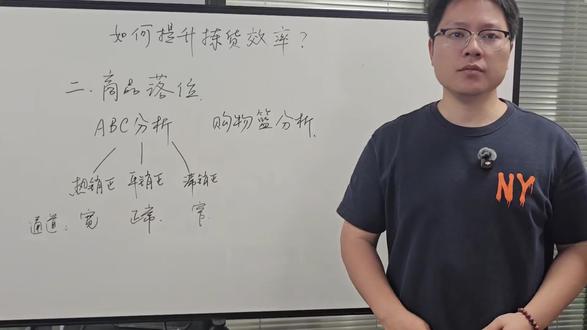 如何提升拣货效率?
二.商品落位
ABC分析 购物篮分析.
热销区 平销区 滞销区
通道: 宽 正常. 窄.
NY